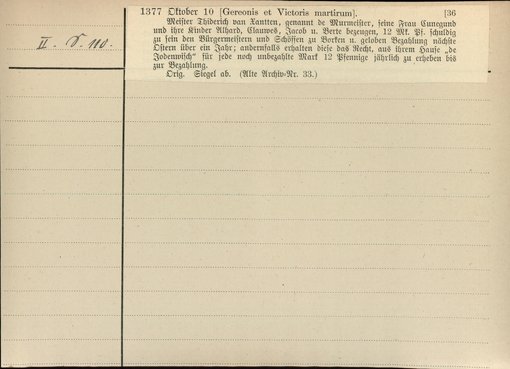 II. S. 110.
1377 Oktober 10 [Gereonis et Victoris martirum]. [36
Meister Thiderich van Xantten, genannt de Murmeister, seine Frau Cunegund
und ihre Kinder Alhard, Clauwes, Jacob u. Berte bezeugen, 12 Mk. Pf. schuldig
zu sein den Bürgermeistern und Schöffen zu Borken u. geloben Bezahlung nächste
Ostern über ein Jahr; andernfalls erhalten diese das Recht, aus ihrem Hause „de
Jodenwisch“ für jede noch unbezahlte Mark 12 Pfennige jährlich zu erheben bis
zur Bezahlung.
Orig. Siegel ab. (Alte Archiv-Nr. 33.)